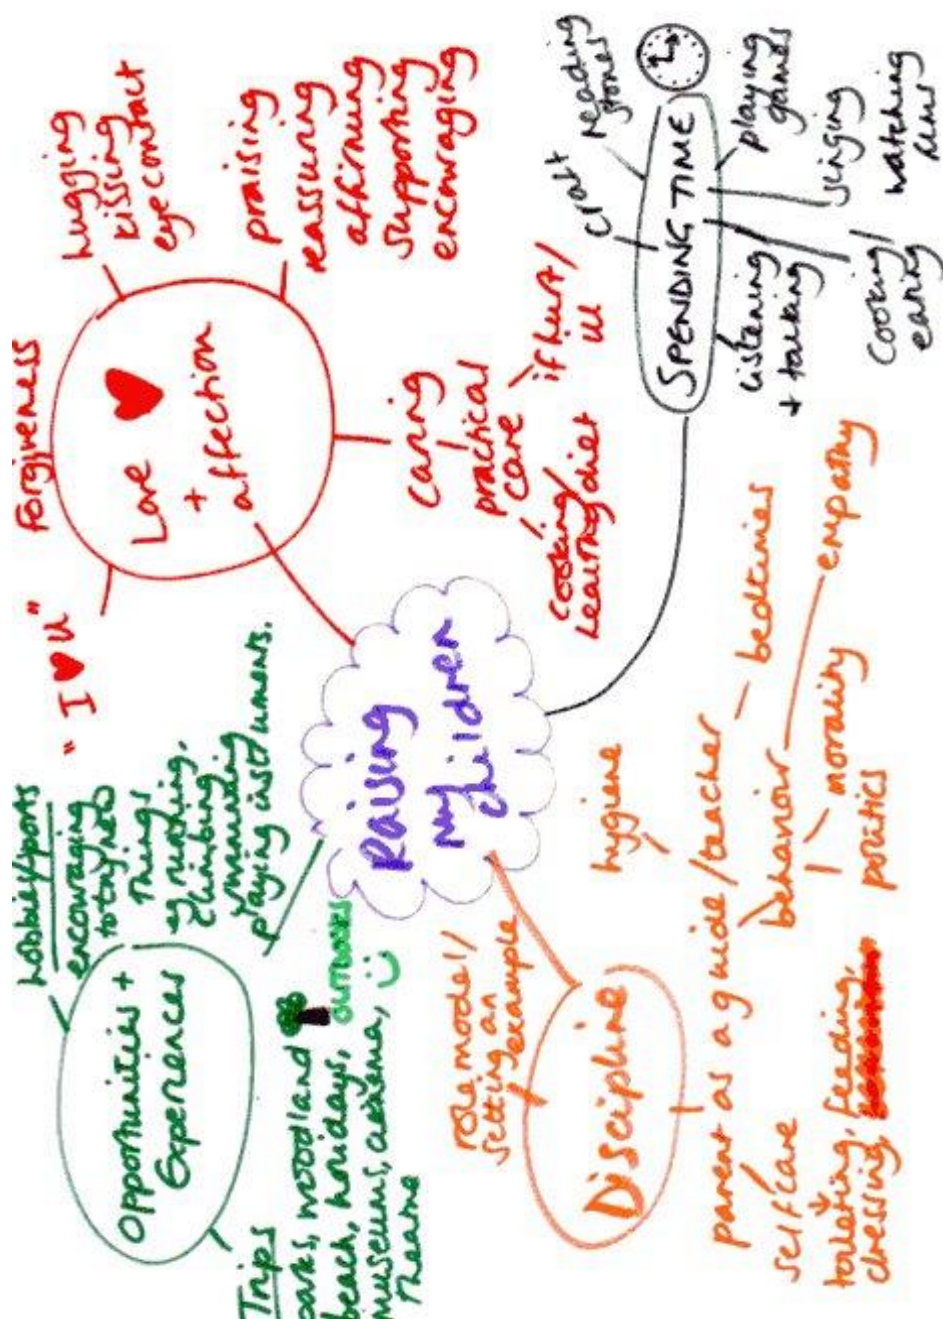 Raising
my
children
Love
+
affection
Forgiveness
"I ♥ u"
hugging
kissing
eye contact
praising
reassuring
affirming
supporting
encouraging
caring
practical
care
if hurt/
ill
cooking/
healthy diet
SPENDING TIME
craft
reading
stories
playing
games
singing
watching
listening
+ talking
cooking/
eating
Discipline
role model/
setting an
example
parent as a guide/teacher
hygiene
bedtimes
behavior
empathy
morality
politics
self care
toileting, feeding,
dressing,
Opportunities +
Experiences
hobbies/sports
encouraging
to try new
things
eg running,
climbing,
playing instruments.
Trips
park, woodland
beach, holidays,
museums, cinema,
theatre
outdoors